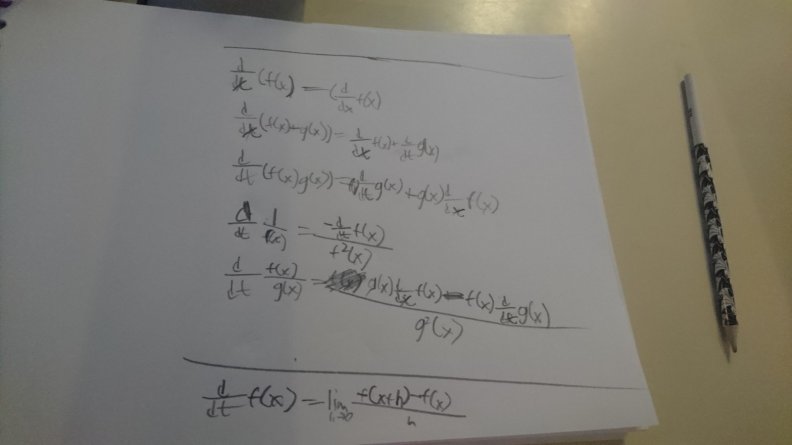 d/dx (f(x) = (d/dx f(x)
d/dx (f(x)+g(x)) = d/dx f(x) + d/dt g(x)
d/dt (f(x)g(x)) = f d/dt g(x) + g(x) d/dx f(x)
d/dt 1/f(x) = -d/dt f(x) / f²(x)
d/dt f(x)/g(x) = g(x) d/dx f(x) - f(x) d/dx g(x) / g²(x)
d/dt f(x) = lim h→0 f(x+h)-f(x) / h